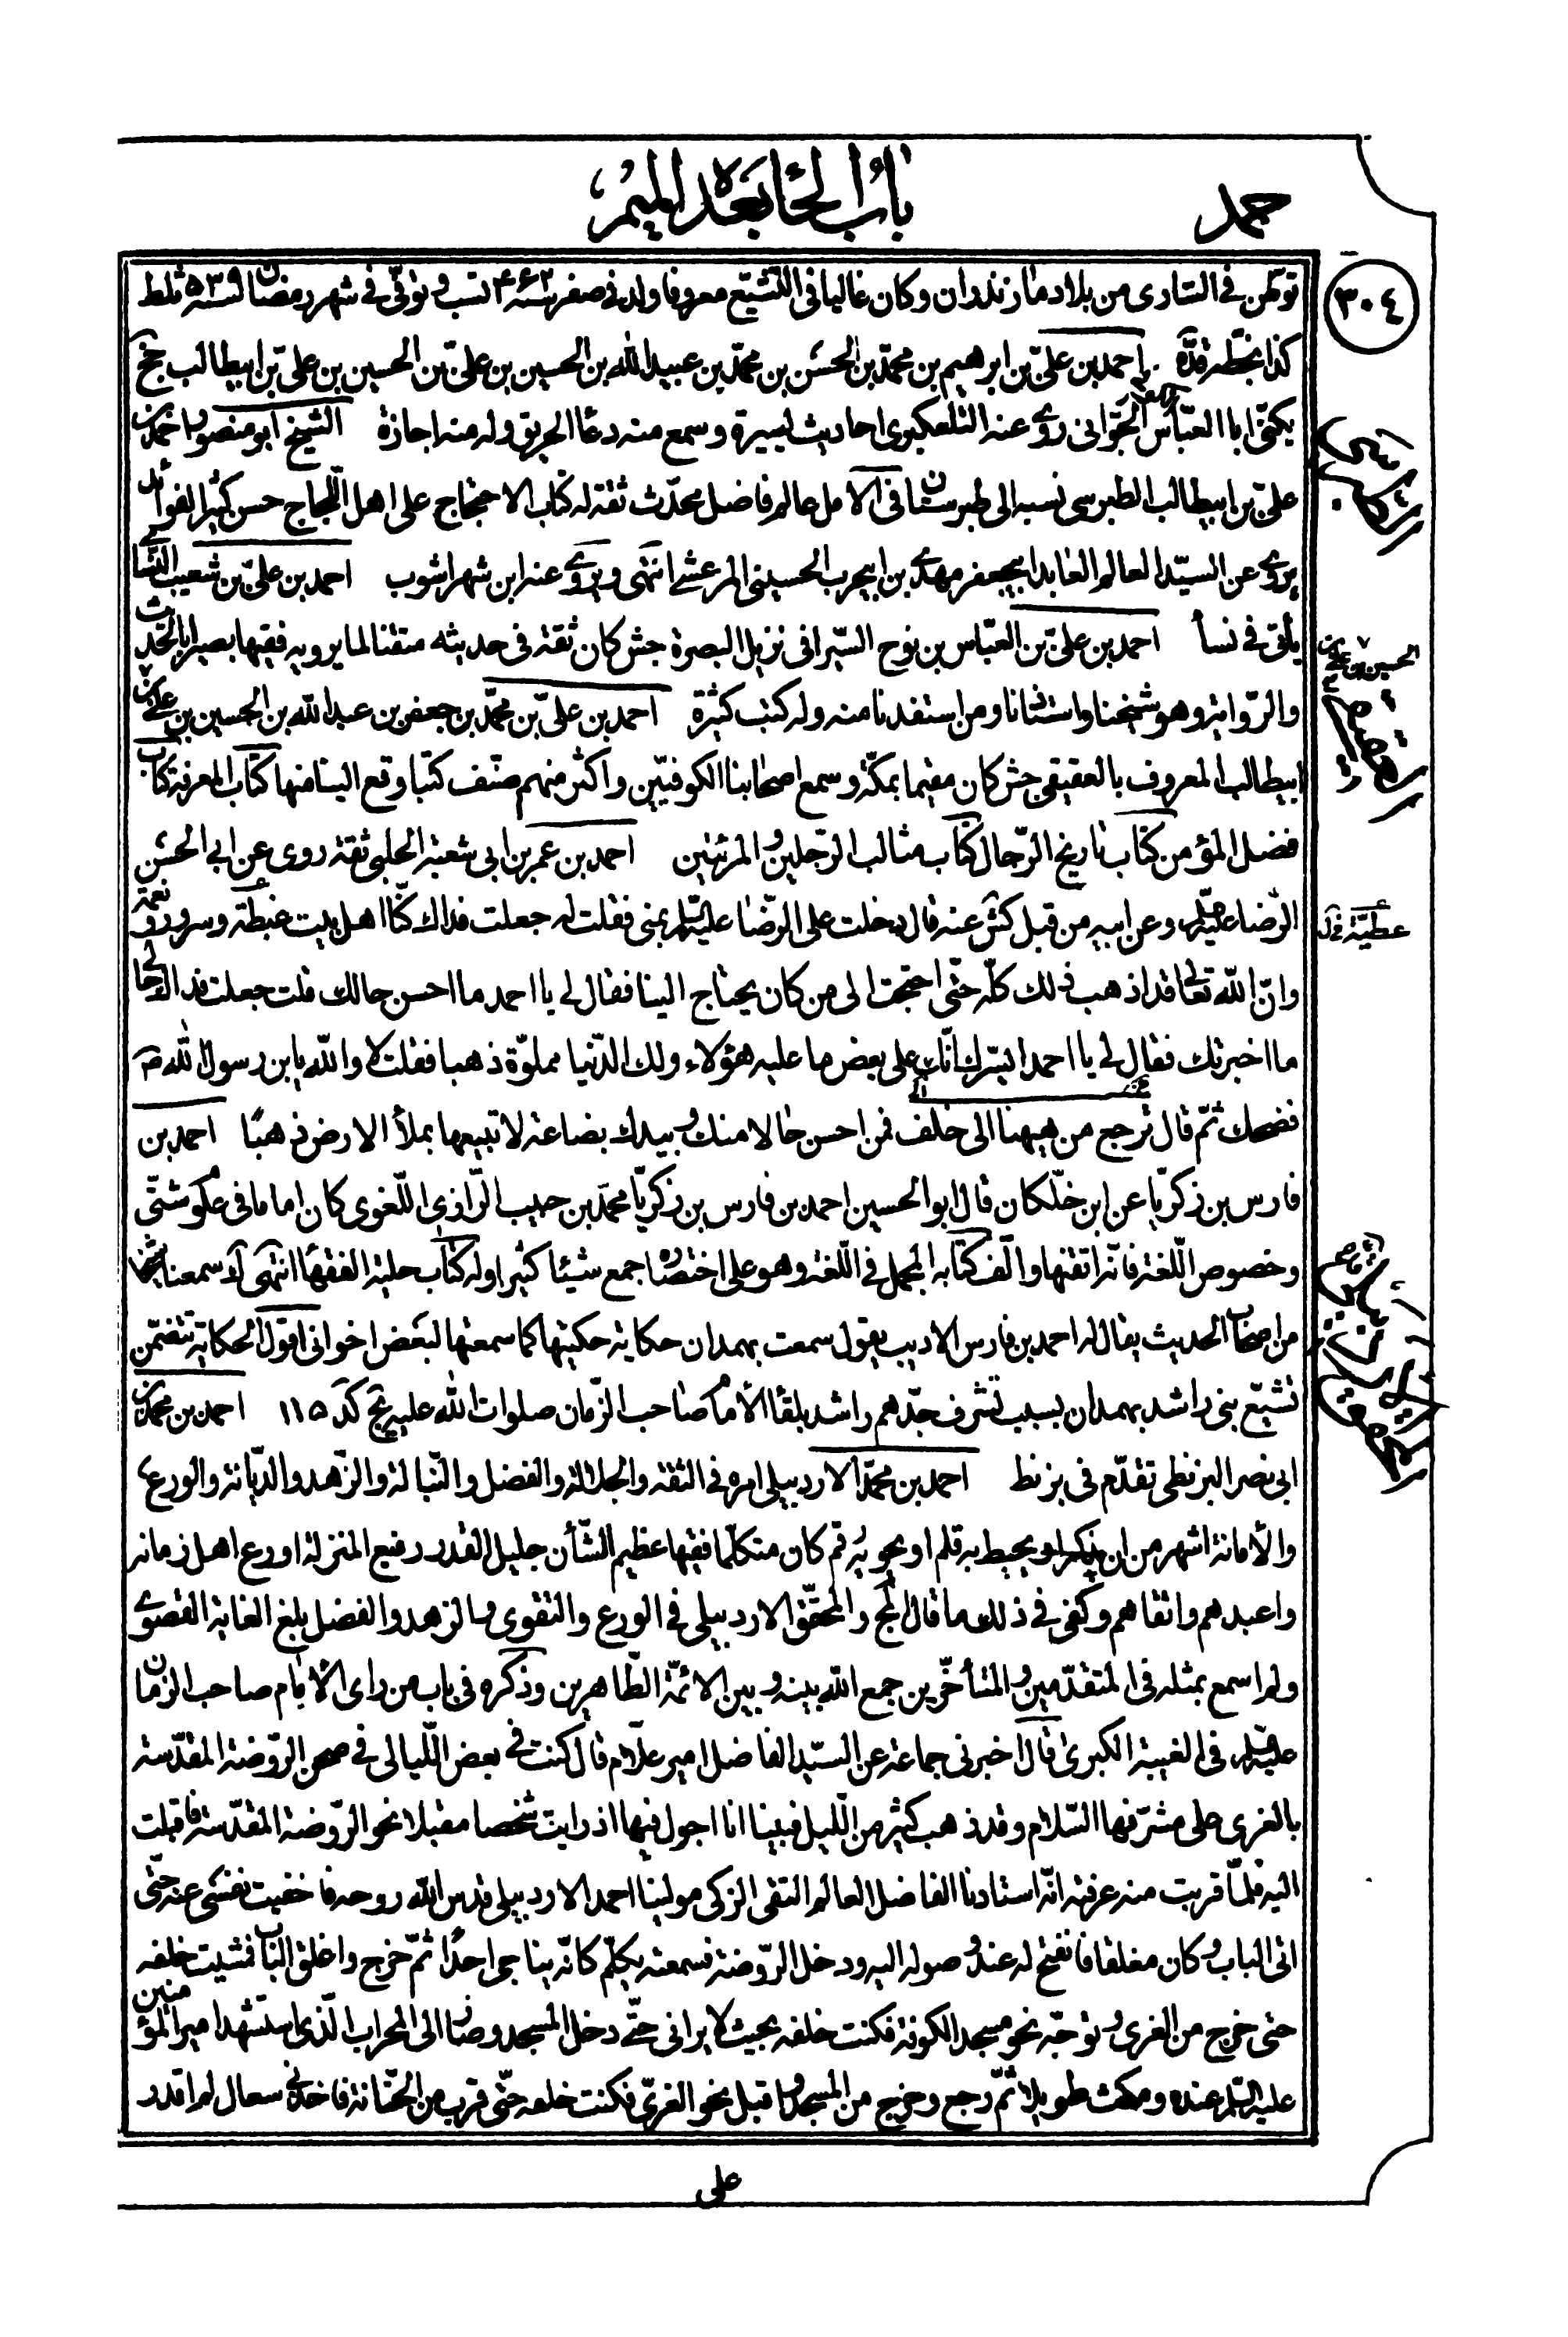 باب الحاء بعده الميم
حمد
٣٠٤
توطن في الساري من بلاد مازندران وكان غاليا في التشيع معروفا ولد في صفر سنة ۴۶۲ تسب وتوفّي في شهر رمضان لسنة ۵۳۹ ثلط
كذا بخطه قدّه احمد بن عليّ بن ابرهيم بن محمّد بن الحسن بن محمّد بن عبيد الله بن الحسين بن عليّ بن الحسين بن عليّ بن ابيطالب جخ
يكنّى ابا العبّاس الجوّانى روى عنه التلعكبرى احاديث يسيرة وسمع منه دعاء الحريق وله منه اجازة الشيخ ابو منصور احمد بن
عليّ بن ابيطالب الطبرسى نسبه الى طبرستان في الامل عالم فاضل محدّث ثقة له كتاب الاحتجاج على اهل اللّجاج حسن كثير الفوائد
يروى عن السيّد العالم العابد ابيجعفر مهدى بن ابيحرب الحسينى المرعشى انتهى ويروى عنه ابن شهراشوب احمد بن عليّ بن شعيب النسا
يأتى في نسأ احمد بن عليّ بن العبّاس بن نوح السّيرافى نزيل البصرة جش كان ثقة فى حديثه متقنا لما يرويه فقيها بصيرا بالحديث
والرّواية وهو شيخنا واستاذنا ومن استفدنا منه وله كتب كثيرة احمد بن عليّ بن محمّد بن جعفر بن عبد الله بن الحسين بن عليّ بن
ابيطالب المعروف بالعقيقى جش كان مقيما بمكّة وسمع اصحابنا الكوفيّين واكثر منهم صنّف كتبا وقع الينا منها كتاب المعرفة كتاب
فضل المؤمن كتاب تاريخ الرّجال كتاب مثالب الرّجلين والمرئتين احمد بن عمر بن ابى شعبة الحلبى ثقة روى عن ابى الحسن
الرّضا عليه السلم وعن ابيه من قبل كش عنه قال دخلت على الرّضا عليه السلم بمنى فقلت له جعلت فداك كنّا اهل بيت غبطة وسرور ونعمة
وانّ الله تعالى قد اذهب ذلك كلّه حتّى احتجت الى من كان يحتاج الينا فقال لى يا احمد ما احسن حالك قلت جعلت فداك حالى
ما اخبرتك فقال لى يا احمد ايسرّك انّك على بعض ما عليه هؤلاء ولك الدّنيا مملوّة ذهبا فقلت لا والله يابن رسول الله ص
فضحك ثمّ قال ترجع من هيهنا الى خلف فمن احسن حالا منك وبيدك بضاعة لا تبيعها بملأ الارض ذهبًا احمد بن
فارس بن زكريّا عن ابن خلّكان قال ابو الحسين احمد بن فارس بن زكريّا محمّد بن حبيب الرّازى اللّغوى كان اماما فى علوم شتّى
وخصوص اللّغة فانّه اتقنها والّف كتابه المجمل في اللّغة وهو على اختصاره جمع شيئا كثيرا وله كتاب حلية الفقهاء انتهى سمعنا شيخا
من اصحاب الحديث يقال له احمد بن فارس الاديب يقول سمعت بهمدان حكاية حكيتها كما سمعتها لبعض اخوانى اقول الحكاية تتضمّن
تشيّع بنى راشد بهمدان بسبب تشرف جدّهم راشد بلقاء الامام صاحب الزّمان صلوات الله عليه يج كد ١١٥ احمد بن محمد بن
ابى نصر البزنطى تقدّم فى بزنط احمد بن محمّد الاردبيلى امره في الثقة والجلالة والفضل والنّبالة والزّهد والدّيانة والورع
والأمانة اشهر من ان يذكر او يحيط به قلم او يحويه رقم كان متكلّما فقيها عظيم الشّأن جليل القدر رفيع المنزلة اورع اهل زمانه
واعبدهم واتقاهم وكفى في ذلك ما قال المج والمحقّق الاردبيلى في الورع والتقوى والزهد والفضل بلغ الغاية القصوى
ولم اسمع بمثله فى المتقدّمين والمتأخّرين جمع الله بينه وبين الائمّة الطّاهرين وذكره فى باب من راى الامام صاحب الزمان
عليه السلم فى الغيبة الكبرى قال اخبرنى جماعة عن السيّد الفاضل امير علّام قال كنت في بعض اللّيالى في صحن الرّوضة المقدّسة
بالغرى على مشرّفها السّلام وقد ذهب كثير من اللّيل فبينا انا اجول فيها اذ رايت شخصا مقبلا نحو الرّوضة المقدّسة فاقبلت
اليه فلمّا قربت منه عرفته انّه استادنا الفاضل العالم التقى الزكى مولينا احمد الاردبيلى قدس الله روحه فاخفيت نفسى عنه حتّى
اتى الباب وكان مغلقا فانفتح له عند وصوله اليه ودخل الرّوضة فسمعته يكلّم كانّه يناجى احدًا ثمّ خرج واغلق الباب فمشيت خلفه
حتى خرج من الغرى وتوجّه نحو مسجد الكوفة فكنت خلفه بحيث لا يرانى حتّى دخل المسجد وصار الى المحراب الّذى استشهد امير المؤمنين
عليه السّلم عنده ومكث طويلا ثمّ رجع وخرج من المسجد واقبل نحو الغرىّ فكنت خلفه حتّى قرب من الحنّانة فاخذنى سعال لم اقدر
الحسين بن علي بن
عطيّة في
على